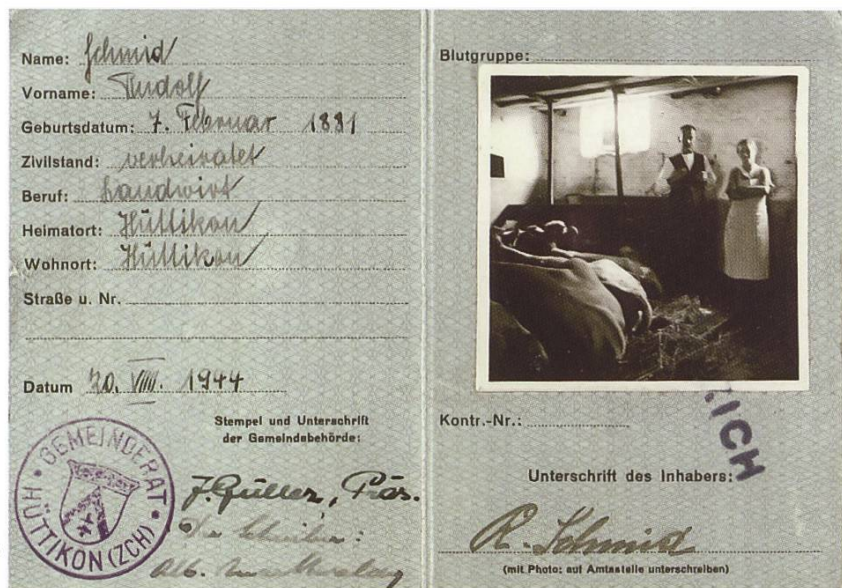 Name: Schmid
Vorname: Rudolf
Geburtsdatum: 7. Februar 1881
Zivilstand: verheiratet
Beruf: Landwirt
Heimatort: Hüttikon
Wohnort: Hüttikon
Straße u. Nr.
Datum 20. VIII. 1944
Stempel und Unterschrift
der Gemeindebehörde:
GEMEINDERAT
HÜTTIKON (ZCH)
J. Güller, Präs.
Der Schreiber:
Alb.
Blutgruppe:
Kontr.-Nr.:
RICH
Unterschrift des Inhabers:
R. Schmid
(mit Photo: auf Amtsstelle unterschreiben)